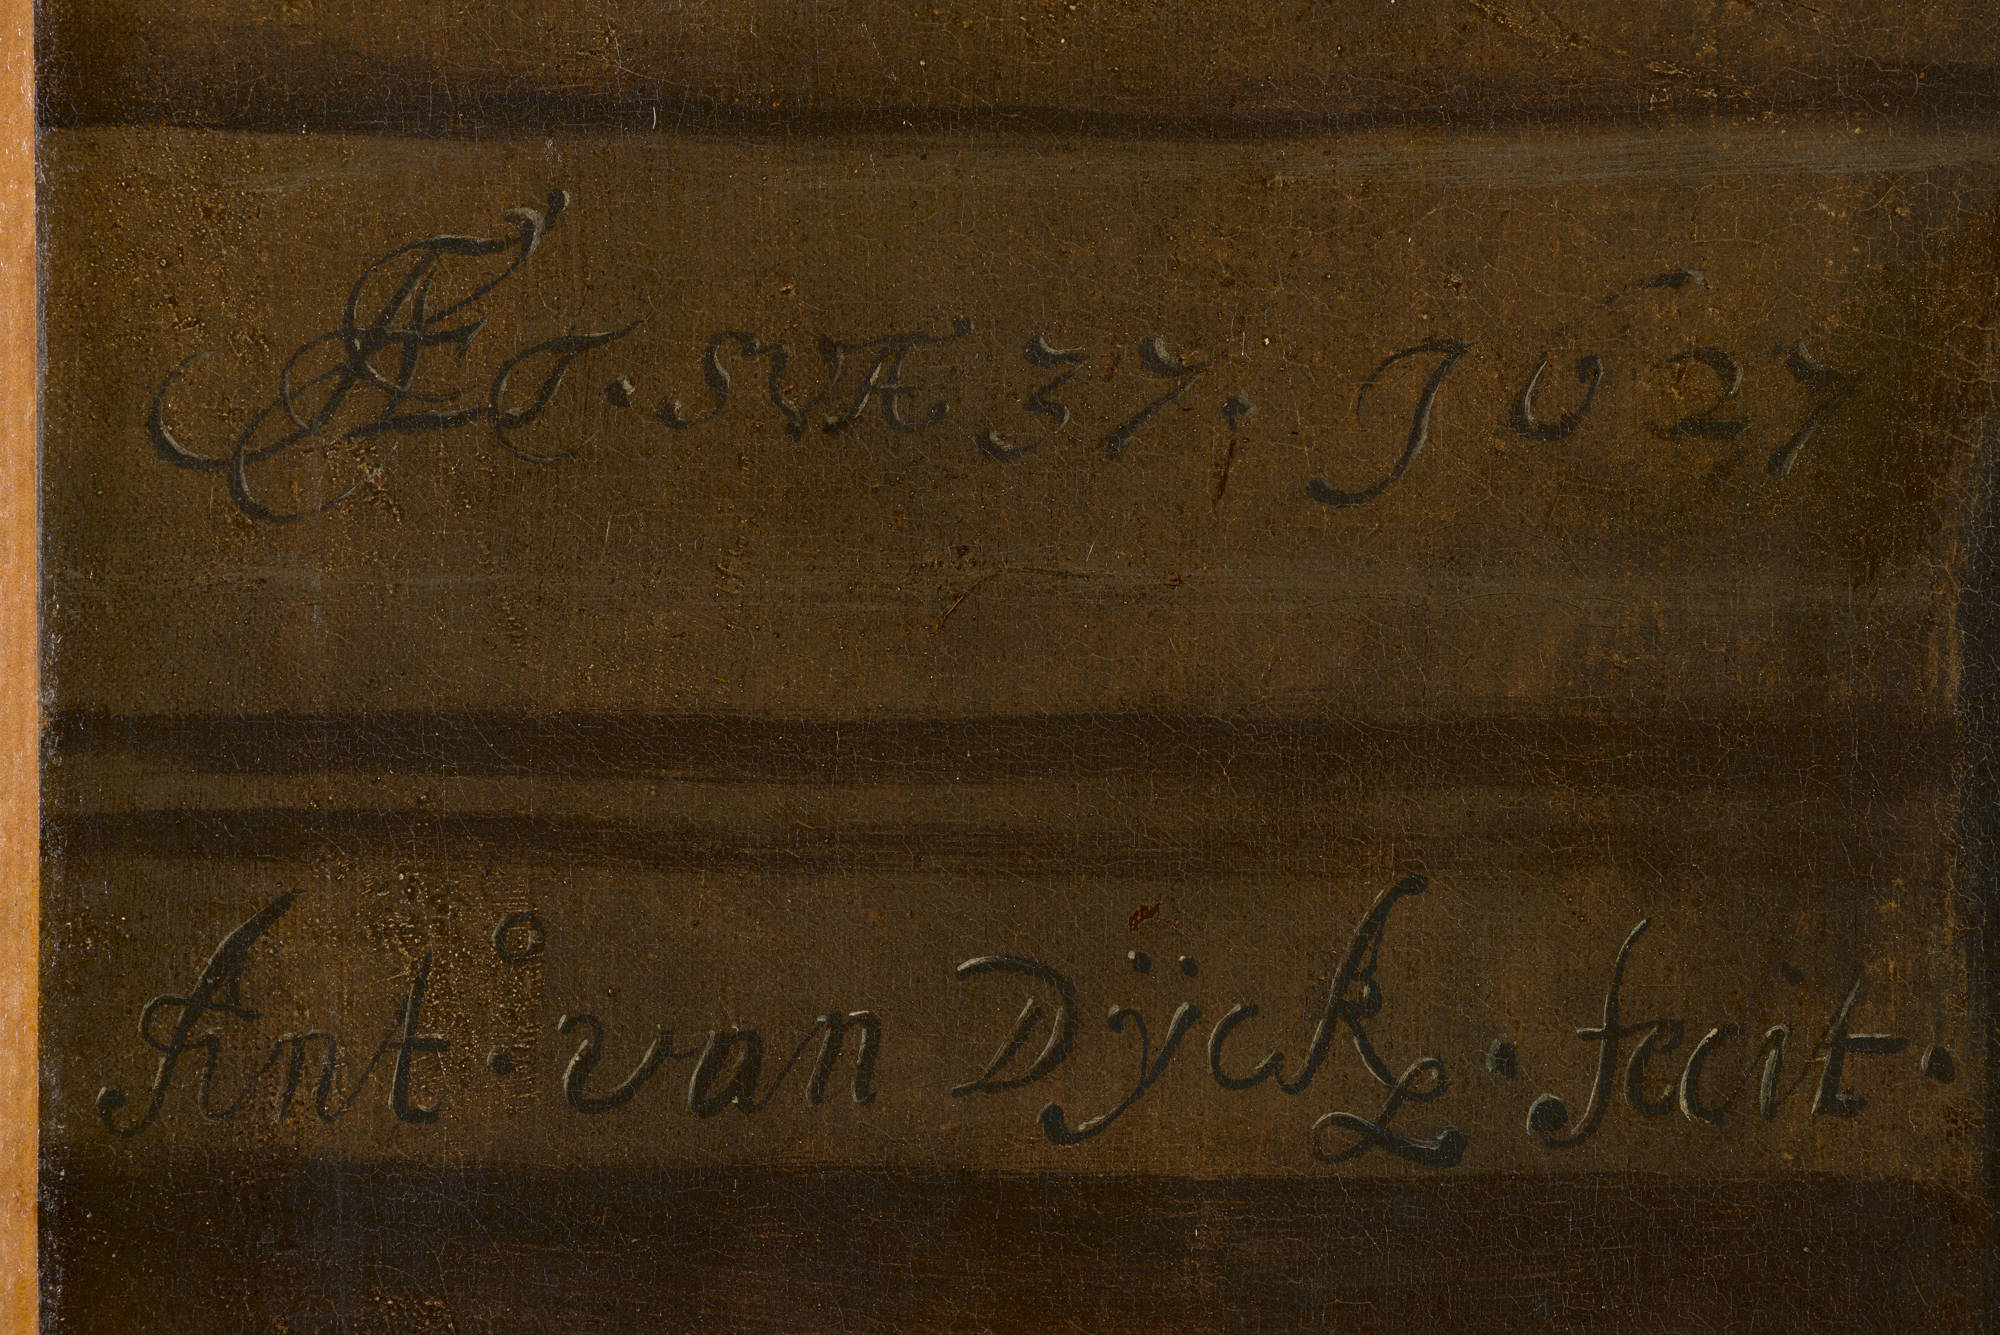 ÆT. SVÆ 37. 1627
Antº. van Dÿck. fecit.